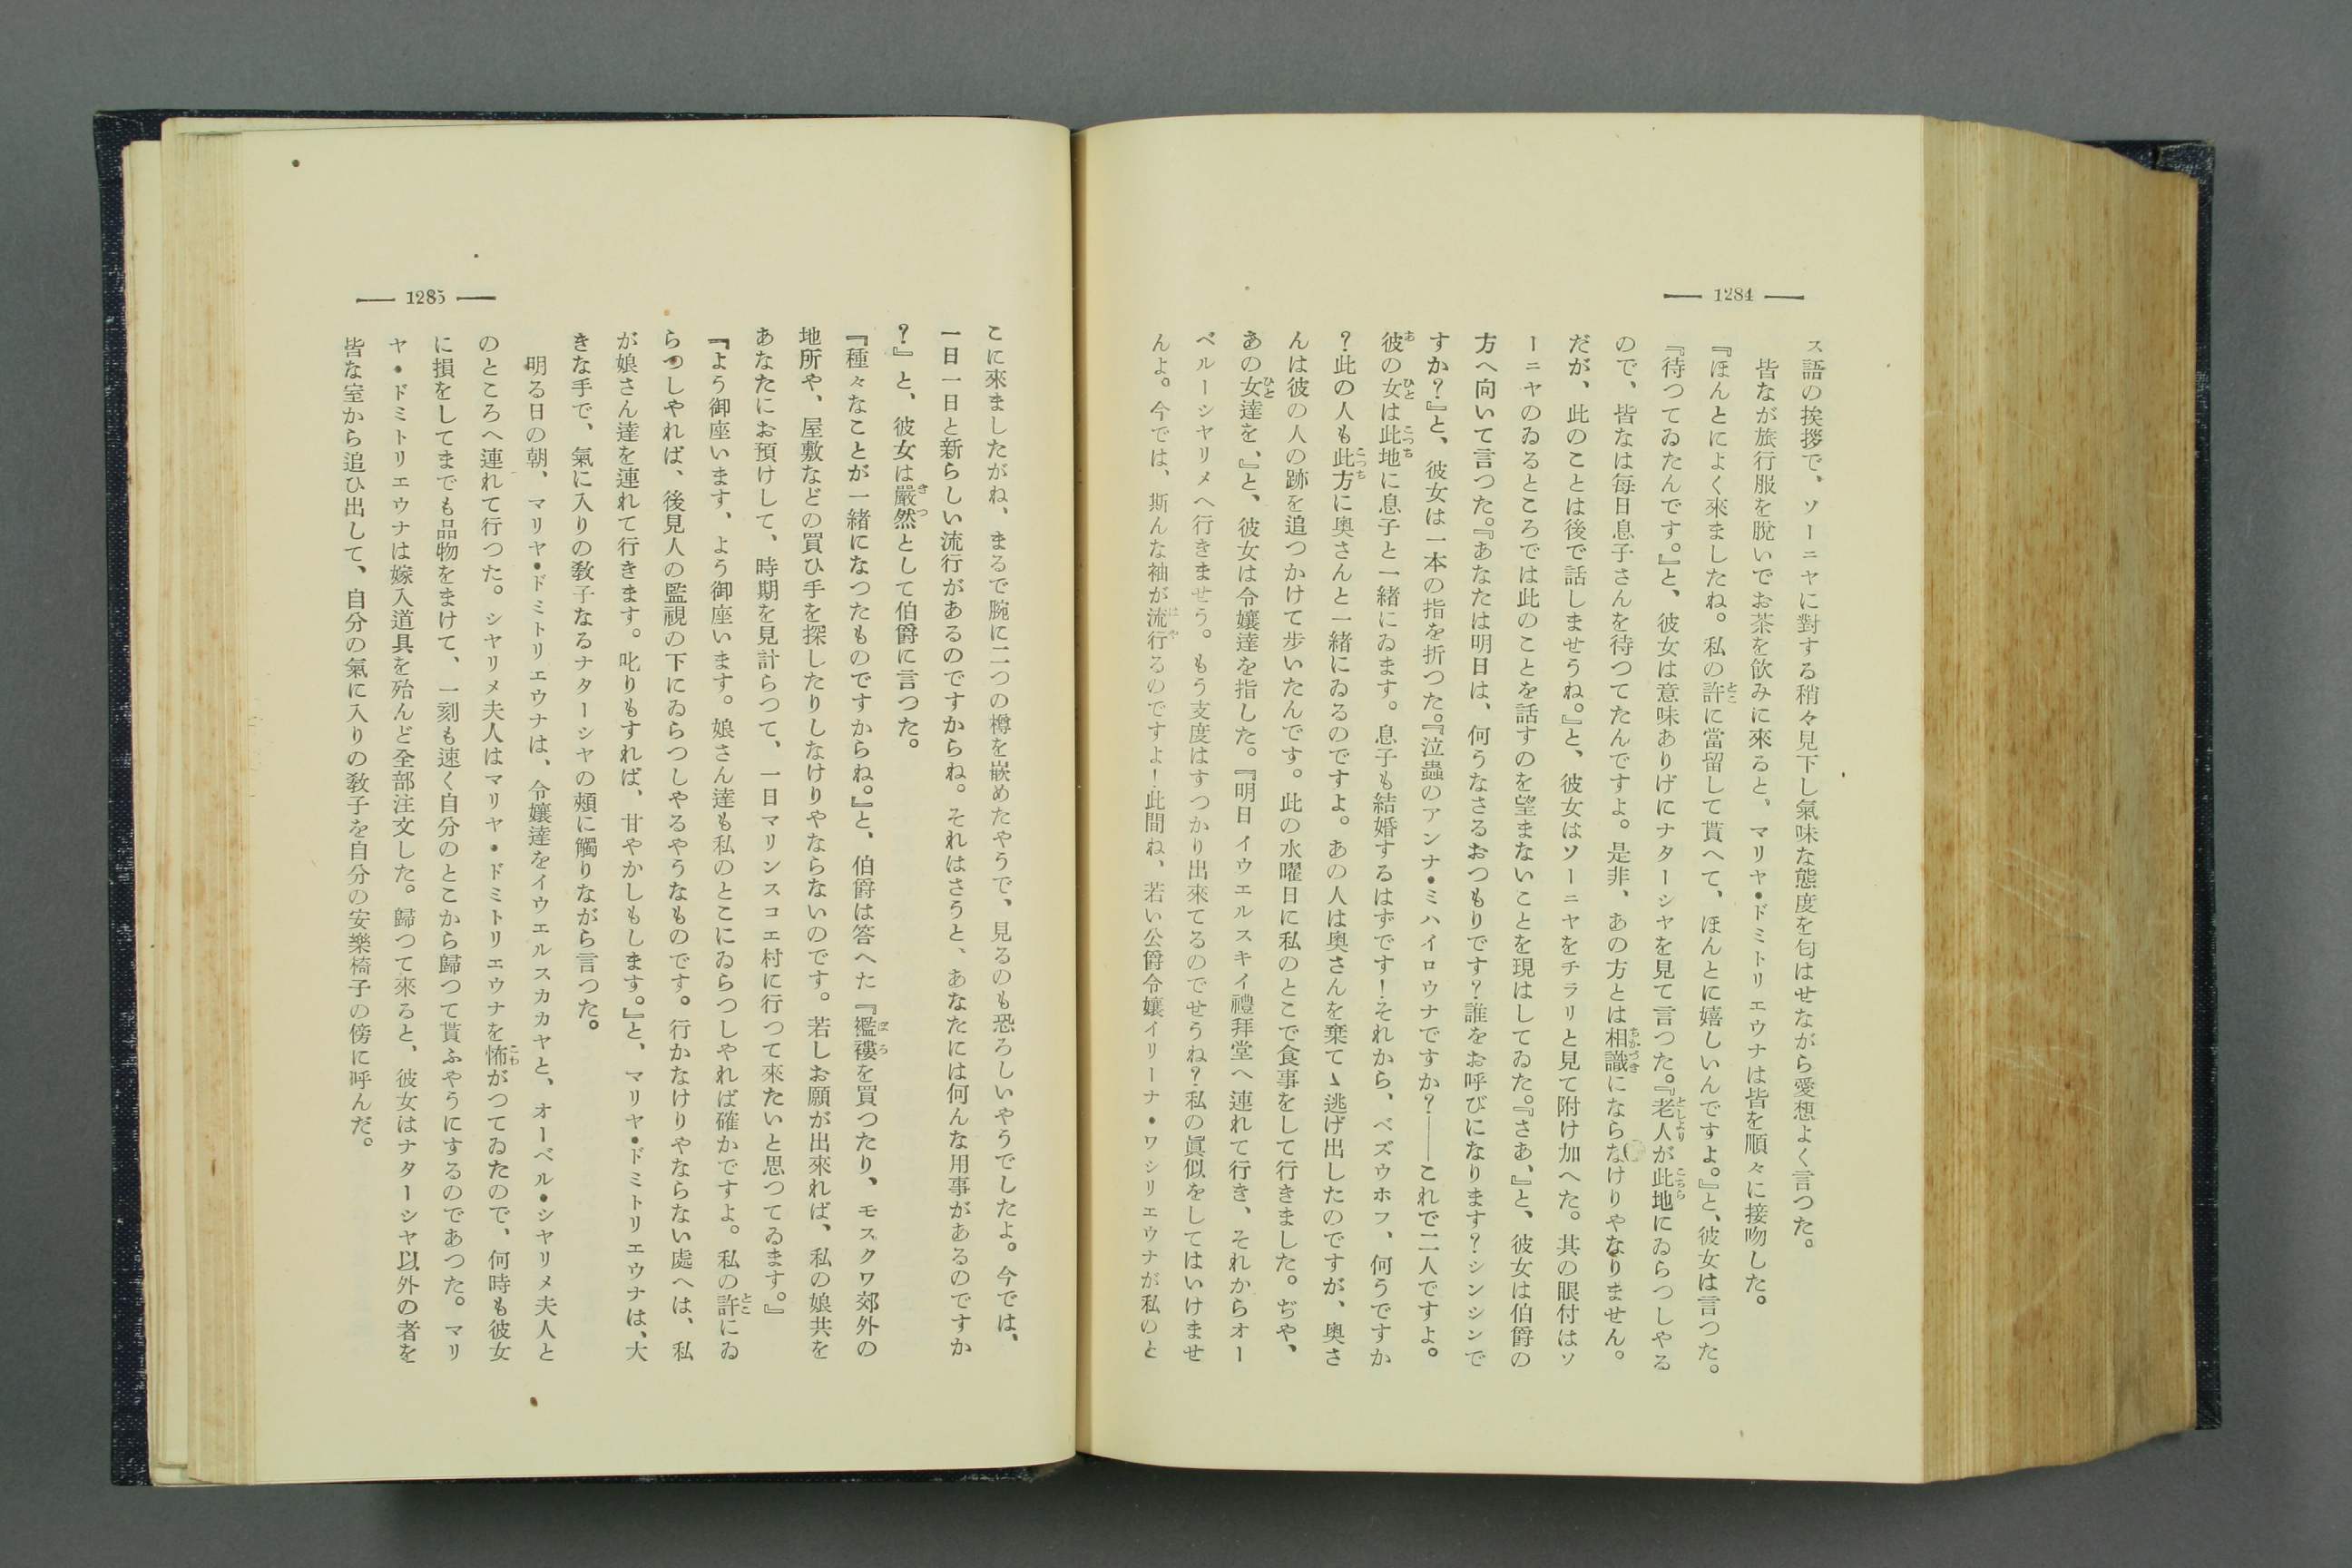 1284
ス語の挨拶で、ソーニヤに對する稍々見下し氣味な態度を匂はせながら愛想よく言つた。
皆なが旅行服を脫いでお茶を飮みに來ると、マリヤ・ドミトリエウナは皆を順々に接吻した。
『ほんとによく來ましたね。私の許に當留して貰へて、ほんとに嬉しいんですよ。』と、彼女は言つた。
『待つてゐたんです。』と、彼女は意味ありげにナターシヤを見て言つた。『老人が此地にゐらつしやる
ので、皆なは每日息子さんを待つてたんですよ。是非、あの方とは相識にならなけりやなりません。
だが、此のことは後で話しませうね。』と、彼女はソーニヤをチラリと見て附け加へた。其の眼付はソ
ーニヤのゐるところでは此のことを話すのを望まないことを現はしてゐた。『さあ、』と、彼女は伯爵の
方へ向いて言つた。『あなたは明日は、何うなさるおつもりです?誰をお呼びになります?シンシンで
すか?』と、彼女は一本の指を折つた。『泣蟲のアンナ・ミハイロウナですか?――これで二人ですよ。
彼の女は此地に息子と一緖にゐます。息子も結婚するはずです!それから、ベズウホフ、何うですか
?此の人も此方に奧さんと一緖にゐるのですよ。あの人は奧さんを棄てゝ逃げ出したのですが、奧さ
んは彼の人の跡を追つかけて步いたんです。此の水曜日に私のとこで食事をして行きました。ぢや、
あの女達を、』と、彼女は令孃達を指した。『明日イウエルスキイ禮拜堂へ連れて行き、それからオー
ベルーシヤリメへ行きませう。もう支度はすつかり出來てるのでせうね?私の眞似をしてはいけませ
んよ。今では、斯んな袖が流行るのですよ!此間ね、若い公爵令孃イリーナ・ワシリエウナが私のと
1285
こに來ましたがね、まるで腕に二つの樽を嵌めたやうで、見るのも恐ろしいやうでしたよ。今では、
一日一日と新らしい流行があるのですからね。それはさうと、あなたには何んな用事があるのですか
?』と、彼女は嚴然として伯爵に言つた。
『種々なことが一緖になつたものですからね。』と、伯爵は答へた『襤褸を買つたり、モスクワ郊外の
地所や、屋敷などの買ひ手を探したりしなけりやならないのです。若しお願が出來れば、私の娘共を
あなたにお預けして、時期を見計らつて、一日マリンスコエ村に行つて來たいと思つてゐます。』
『よう御座います、よう御座います。娘さん達も私のとこにゐらつしやれば確かですよ。私の許にゐ
らつしやれば、後見人の監視の下にゐらつしやるやうなものです。行かなけりやならない處へは、私
が娘さん達を連れて行きます。叱りもすれば、甘やかしもします。』と、マリヤ・ドミトリエウナは、大
きな手で、氣に入りの敎子なるナターシヤの頰に觸りながら言つた。
明る日の朝、マリヤ・ドミトリエウナは、令孃達をイウエルスカカヤと、オーベル・シヤリメ夫人と
のところへ連れて行つた。シヤリメ夫人はマリヤ・ドミトリエウナを怖がつてゐたので、何時も彼女
に損をしてまでも品物をまけて、一刻も速く自分のとこから歸つて貰ふやうにするのであつた。マリ
ヤ・ドミトリエウナは嫁入道具を殆んど全部注文した。歸つて來ると、彼女はナターシヤ以外の者を
皆な室から追ひ出して、自分の氣に入りの敎子を自分の安樂椅子の傍に呼んだ。